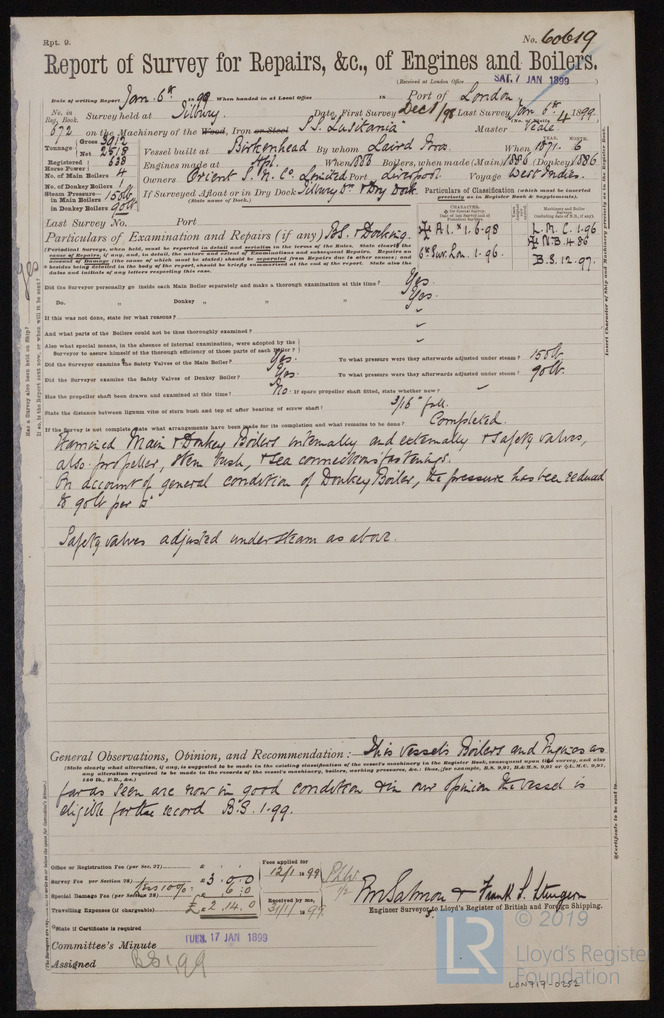 Rpt. 9.
No. 60619
Report of Survey for Repairs, &c., of Engines and Boilers.
(Received at London Office SAT. 7 JAN. 1899 )
Date of writing Report Jan. 6th 1899 When handed in at Local Office 18 Port of London
No. in Reg. Book. 672 Survey held at Tilbury. Date, First Survey Dec 1/98 Last Survey Jan 6th 1899.
(No. of Visits 4)
on the Machinery of the Wood, Iron or Steel S.S. Lusitania Master Veale.
Tonnage Gross 3912 Net 2518
Vessel built at Birkenhead By whom Laird Bros. When 1871. 6 YEAR. MONTH.
Registered Horse Power 638
Engines made at When 1886 Boilers, when made (Main) 1886 (Donkey) 1886
No. of Main Boilers 4
Owners Orient S. N. Co. Limited Port Liverpool. Voyage West Indies.
No. of Donkey Boilers 1
If Surveyed Afloat or in Dry Dock Tilbury Dk & Dry Dock
(State name of Dock.)
Steam Pressure in Main Boilers 150 lb
in Donkey Boilers 90 lb
Particulars of Classification (which must be inserted precisely as in Register Book & Supplements).
Last Survey No. Port
Particulars of Examination and Repairs (if any) B.S. & Docking.
A 1. 1. 6.98
Sur. Lon. 1.96
L.M.C. 1.96
N.B. 4.86
B.S. 12.97.
(Periodical Surveys, when held, must be reported in detail and seriatim in the terms of the Rules. State clearly the cause of Repairs, if any, and, in detail, the nature and extent of Examinations and subsequent Repairs. Repairs on account of Damage (the cause of which must be stated) should be separated from Repairs due to other causes; and besides being detailed in the body of the report, should be briefly summarized at the end of the report. State also the dates and initials of any letters respecting this case.
Did the Surveyor personally go inside each Main Boiler separately and make a thorough examination at this time? Yes.
Do. " Donkey " " " Yes.
If this was not done, state for what reasons? "
And what parts of the Boilers could not be thus thoroughly examined? "
Also what special means, in the absence of internal examination, were adopted by the Surveyor to assure himself of the thorough efficiency of those parts of each Boiler? "
Did the Surveyor examine the Safety Valves of the Main Boiler? Yes. To what pressure were they afterwards adjusted under steam? 150 lb.
Did the Surveyor examine the Safety Valves of Donkey Boiler? Yes. To what pressure were they afterwards adjusted under steam? 90 lb.
Has the propeller shaft been drawn and examined at this time? No. If spare propeller shaft fitted, state whether now? "
State the distance between lignum vitæ of stern bush and top of after bearing of screw shaft? 3/16" full.
If the Survey is not complete state what arrangements have been made for its completion and what remains to be done? Completed.
Examined Main & Donkey Boilers internally and externally & safety valves,
also propeller, stern bush, & sea connections fastenings.
On account of general condition of Donkey Boiler, the pressure has been reduced
to 90 lb per □"
Safety valves adjusted under steam as above.
General Observations, Opinion, and Recommendation:— This vessels Boilers and Engines as
(State clearly what alteration, if any, is suggested to be made in the existing classification of the vessel's machinery in the Register Book, consequent upon this survey, and also any alteration required to be made in the records of the vessel's machinery, boilers, working pressures, &c.; thus, for example, B.S. 9,97, B.&M.S. 9,97 or L.M.C. 9,97, 150 lb., F.D., &c.)
far as seen are now in good condition & in our opinion the vessel is
eligible for the record B.S. 1.99.
Office or Registration Fee (per Sec. 27)
Survey Fee (per Section 28) £ 3 . 0 . 0
less 10% : 6 . 0
Special Damage Fee (per Section 28)
Travelling Expenses (if chargeable) £ 2 . 14 . 0
Fees applied for 12/1 1899
Received by me, 31/1/ 1899
E.M. Salmon & Frank S. Sturgeon
Engineer Surveyors to Lloyd's Register of British and Foreign Shipping.
*State if Certificate is required
Committee's Minute TUES. 17 JAN 1899
Assigned B.S. 1,99
© 2019
LR
Lloyd's Register
Foundation
LON719-0252
Has a Survey also been held on Ship? Yes
If so, is the Report sent now, or when will it be sent?
Insert Character of Ship and Machinery precisely as in the Register Book.
*Certificate to be sent to